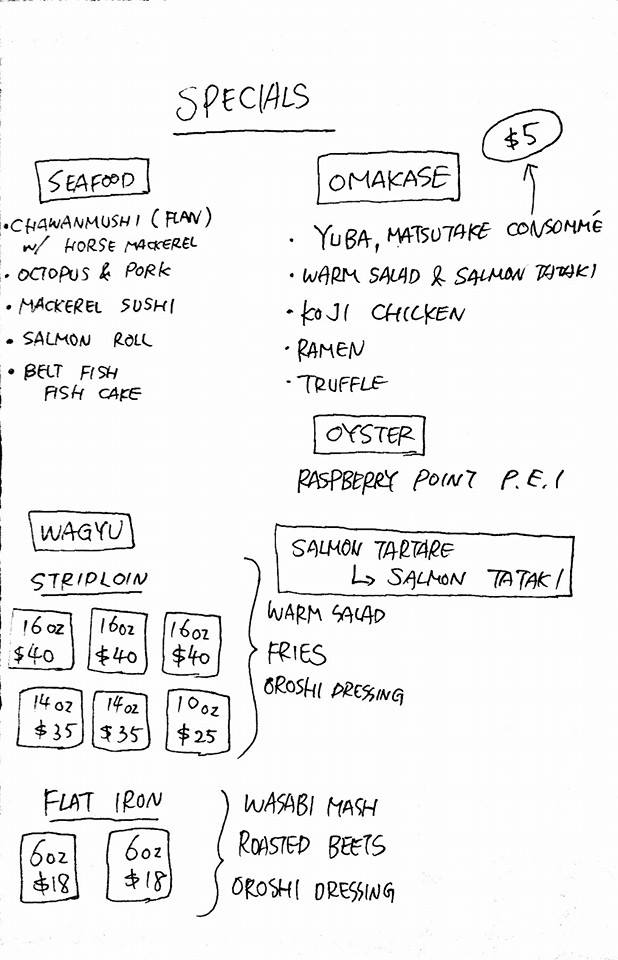 SPECIALS
SEAFOOD
• CHAWANMUSHI (FLAN)
w/ HORSE MACKEREL
• OCTOPUS & PORK
• MACKEREL SUSHI
• SALMON ROLL
• BELT FISH
FISH CAKE
$5
OMAKASE
• YUBA, MATSUTAKE CONSOMMÉ
• WARM SALAD & SALMON TATAKI
• KOJI CHICKEN
• RAMEN
• TRUFFLE
OYSTER
RASPBERRY POINT P.E.I
SALMON TARTARE
↳ SALMON TATAKI
WAGYU
STRIPLOIN
16oz 16oz 16oz
$40 $40 $40
14oz 14oz 10oz
$35 $35 $25
WARM SALAD
FRIES
OROSHI DRESSING
FLAT IRON
6oz 6oz
$18 $18
WASABI MASH
ROASTED BEETS
OROSHI DRESSING